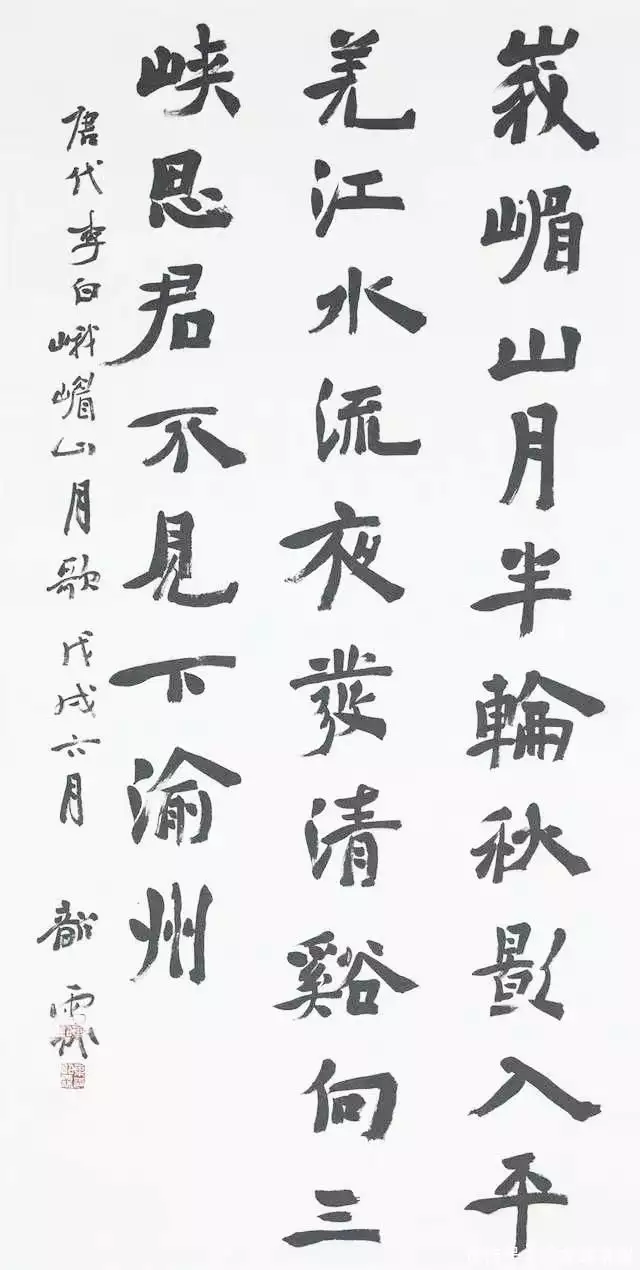 峩嵋山月半輪秋影入平
羌江水流夜發清谿向三
峽思君不見下渝州
唐代李白峨嵋山月歌 戊戌六月 韶